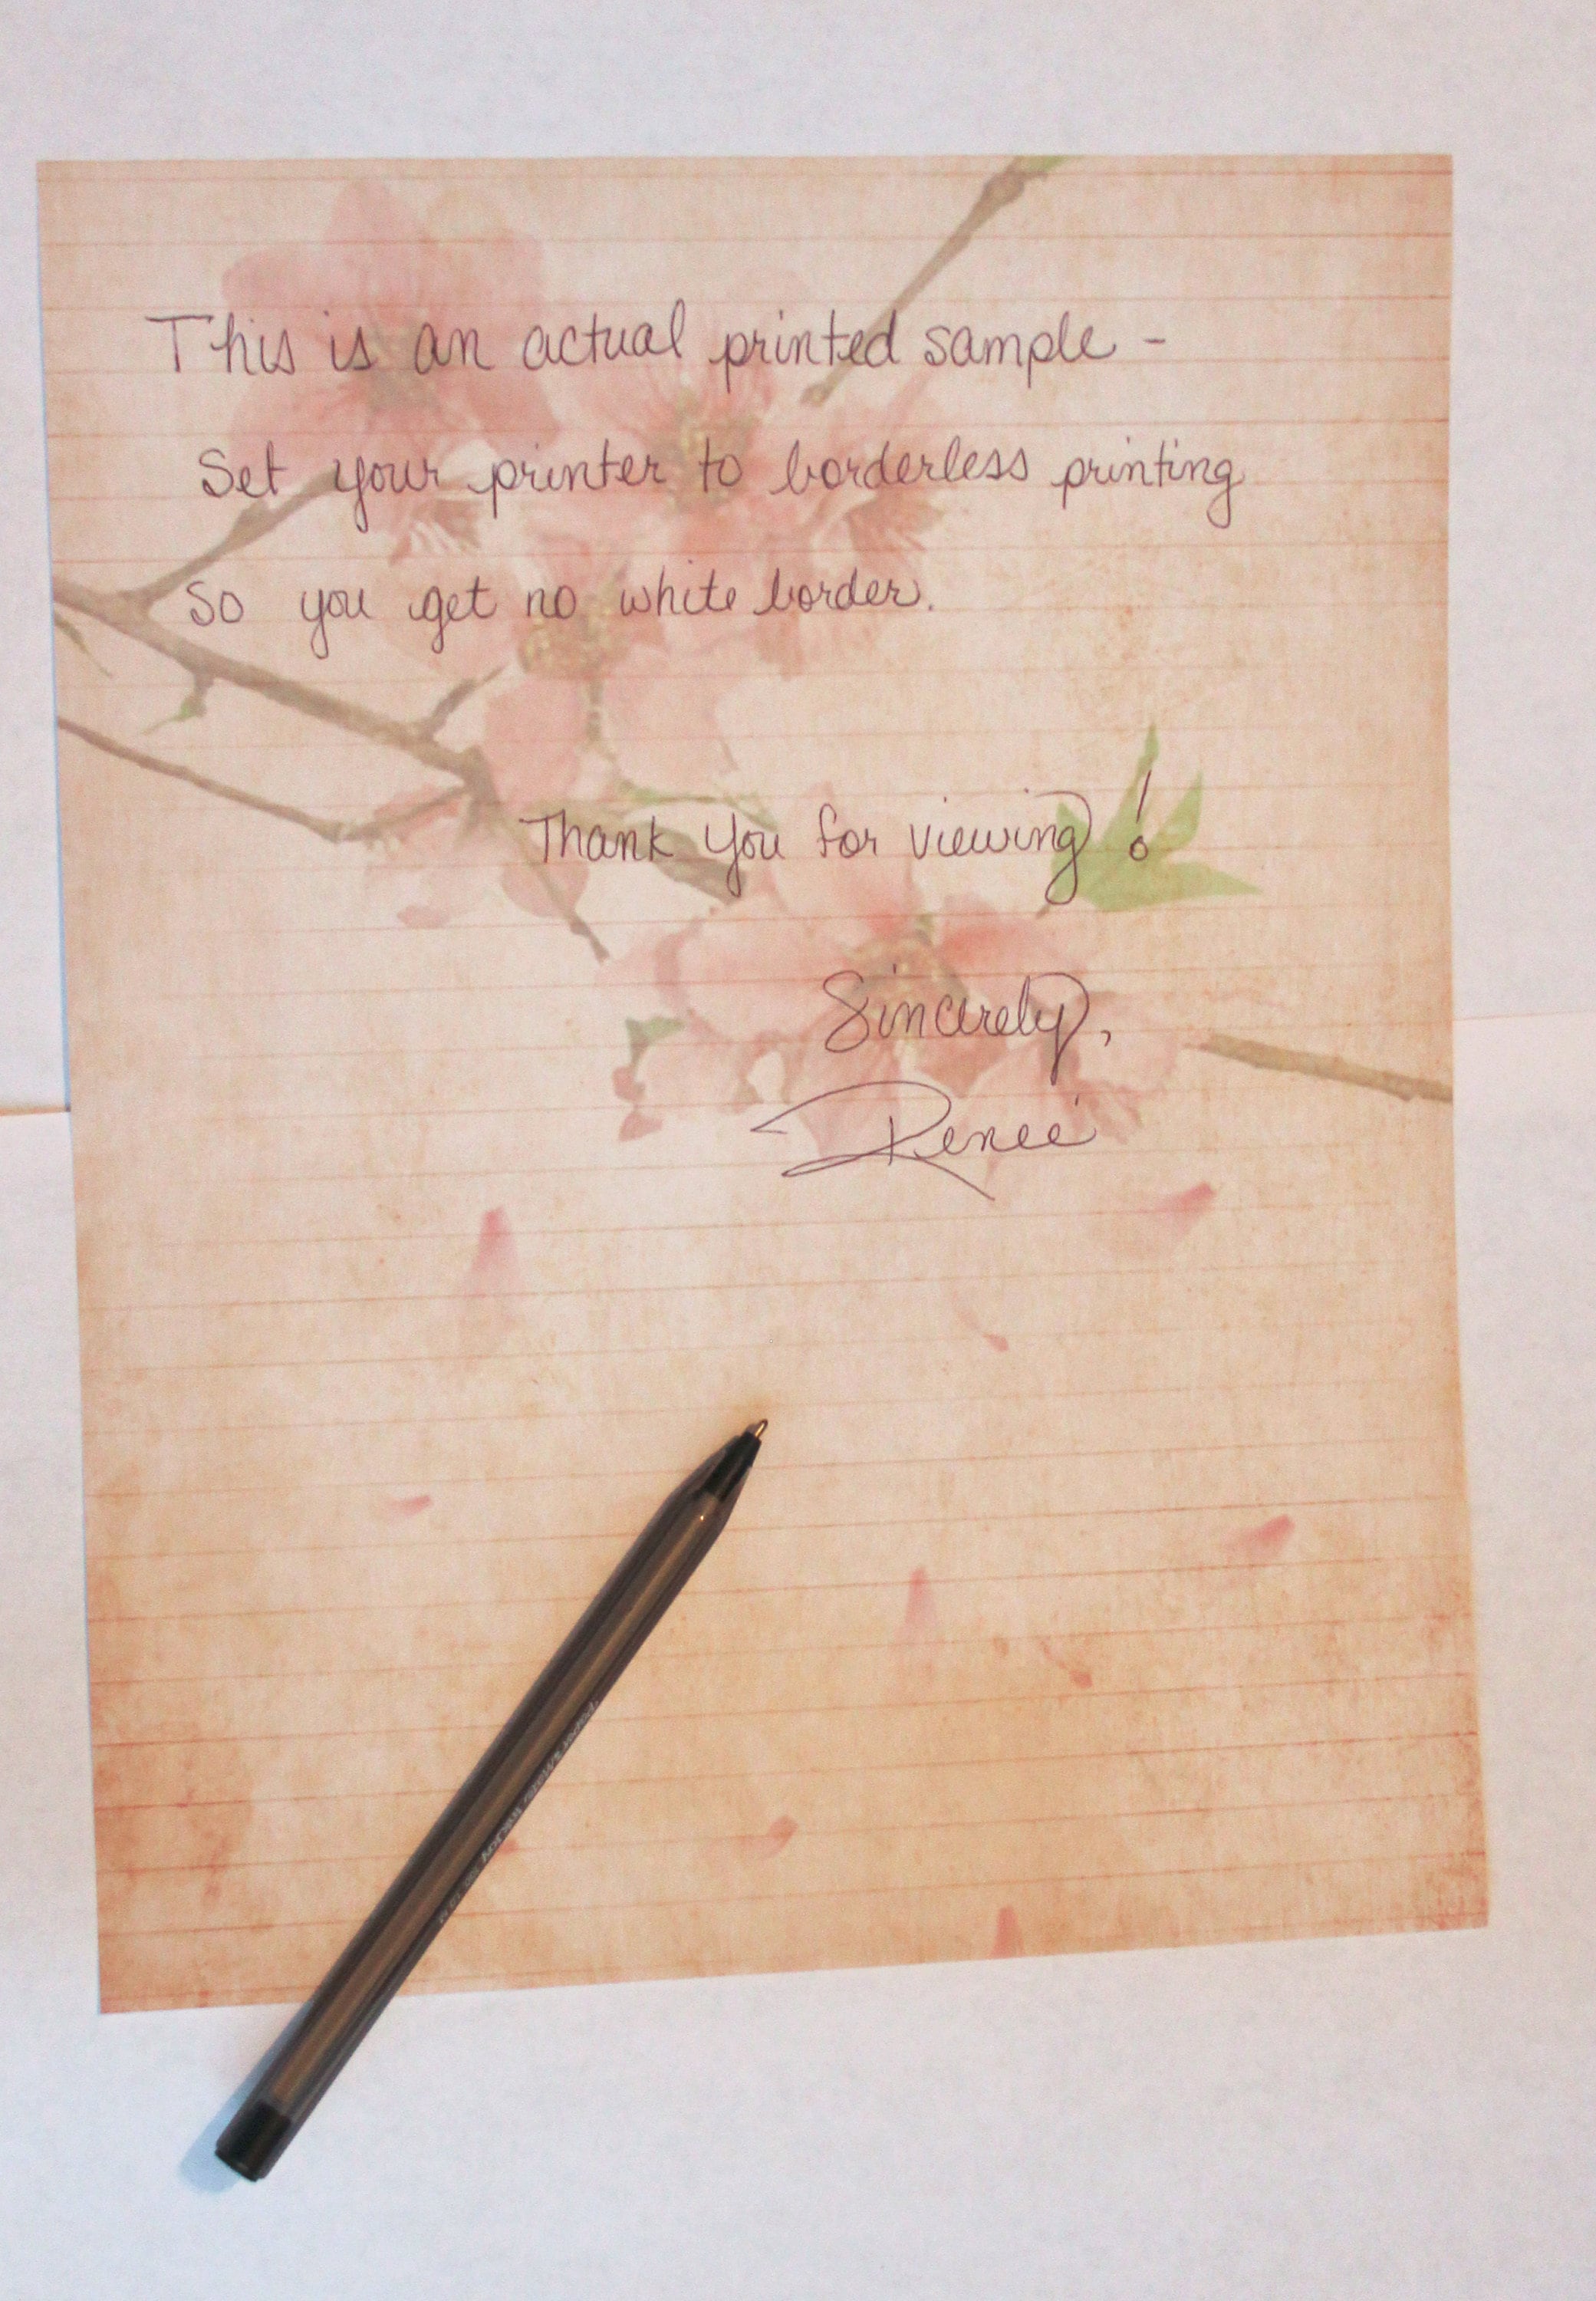 This is an actual printed sample -
Set your printer to borderless printing
So you get no white border.
Thank you for viewing!
Sincerely,
Reneé